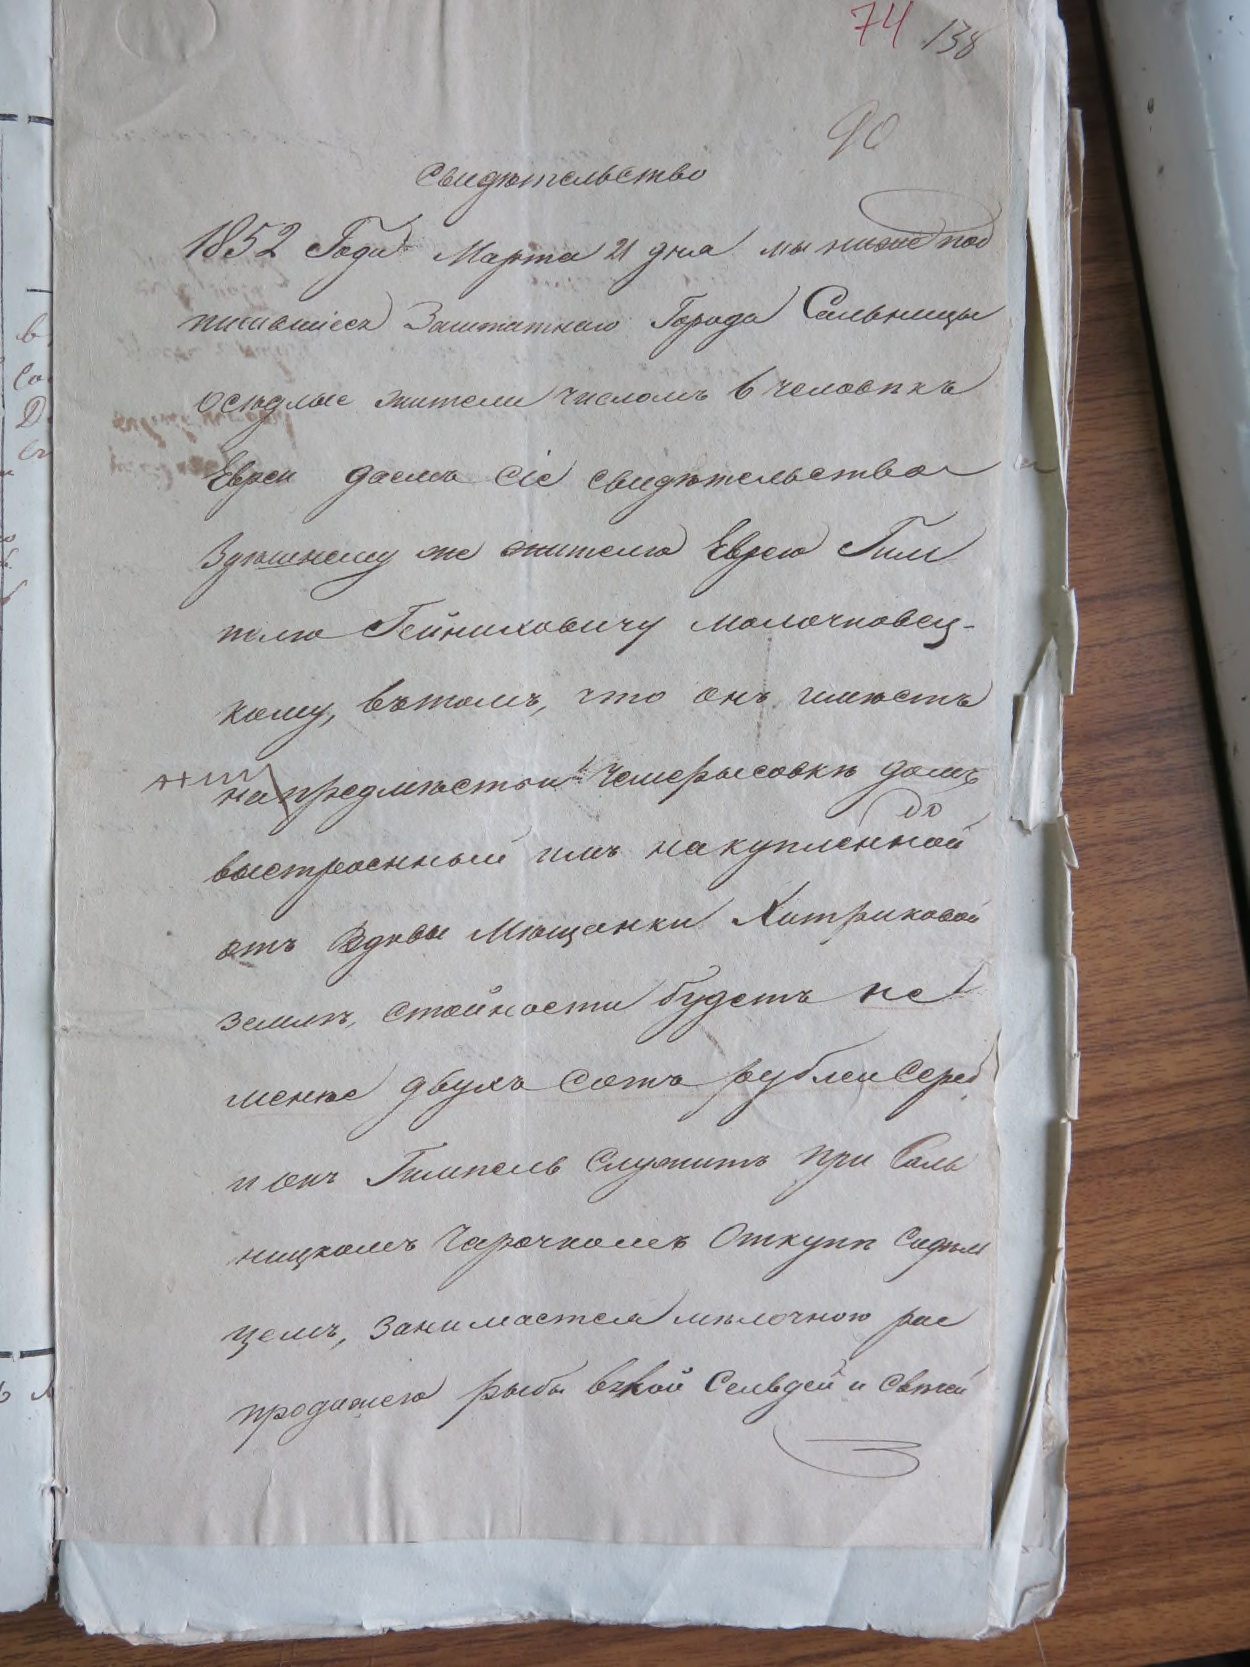 74 138
90
Свидѣтельство
1852 Года Марта 21 дня мы нижепод
писавшіеся Заштатнаго Города Сальницы
осѣдлые жители числомъ 6 человѣкъ
Евреи даемъ сіе свидѣтельство
Здѣшнему же жителю Еврею Гим
пелю Гейниховичу Молочковец-
кому, вътомъ, что онъ имѣетъ
на предмѣстьи Чемерисовкѣ домъ
выстроенный имъ на купленной
отъ Вдовы Мѣщанки Хитриковой
землѣ, стойности будетъ не
менѣе двухъ сотъ рублей Сереб
и онъ Гимпель Служитъ при Саль
ницкомъ Чарочкомъ Откупѣ Сидѣл
цемъ, занимается мѣлочною рас
продажею рыбы Сельдей и Свѣжей